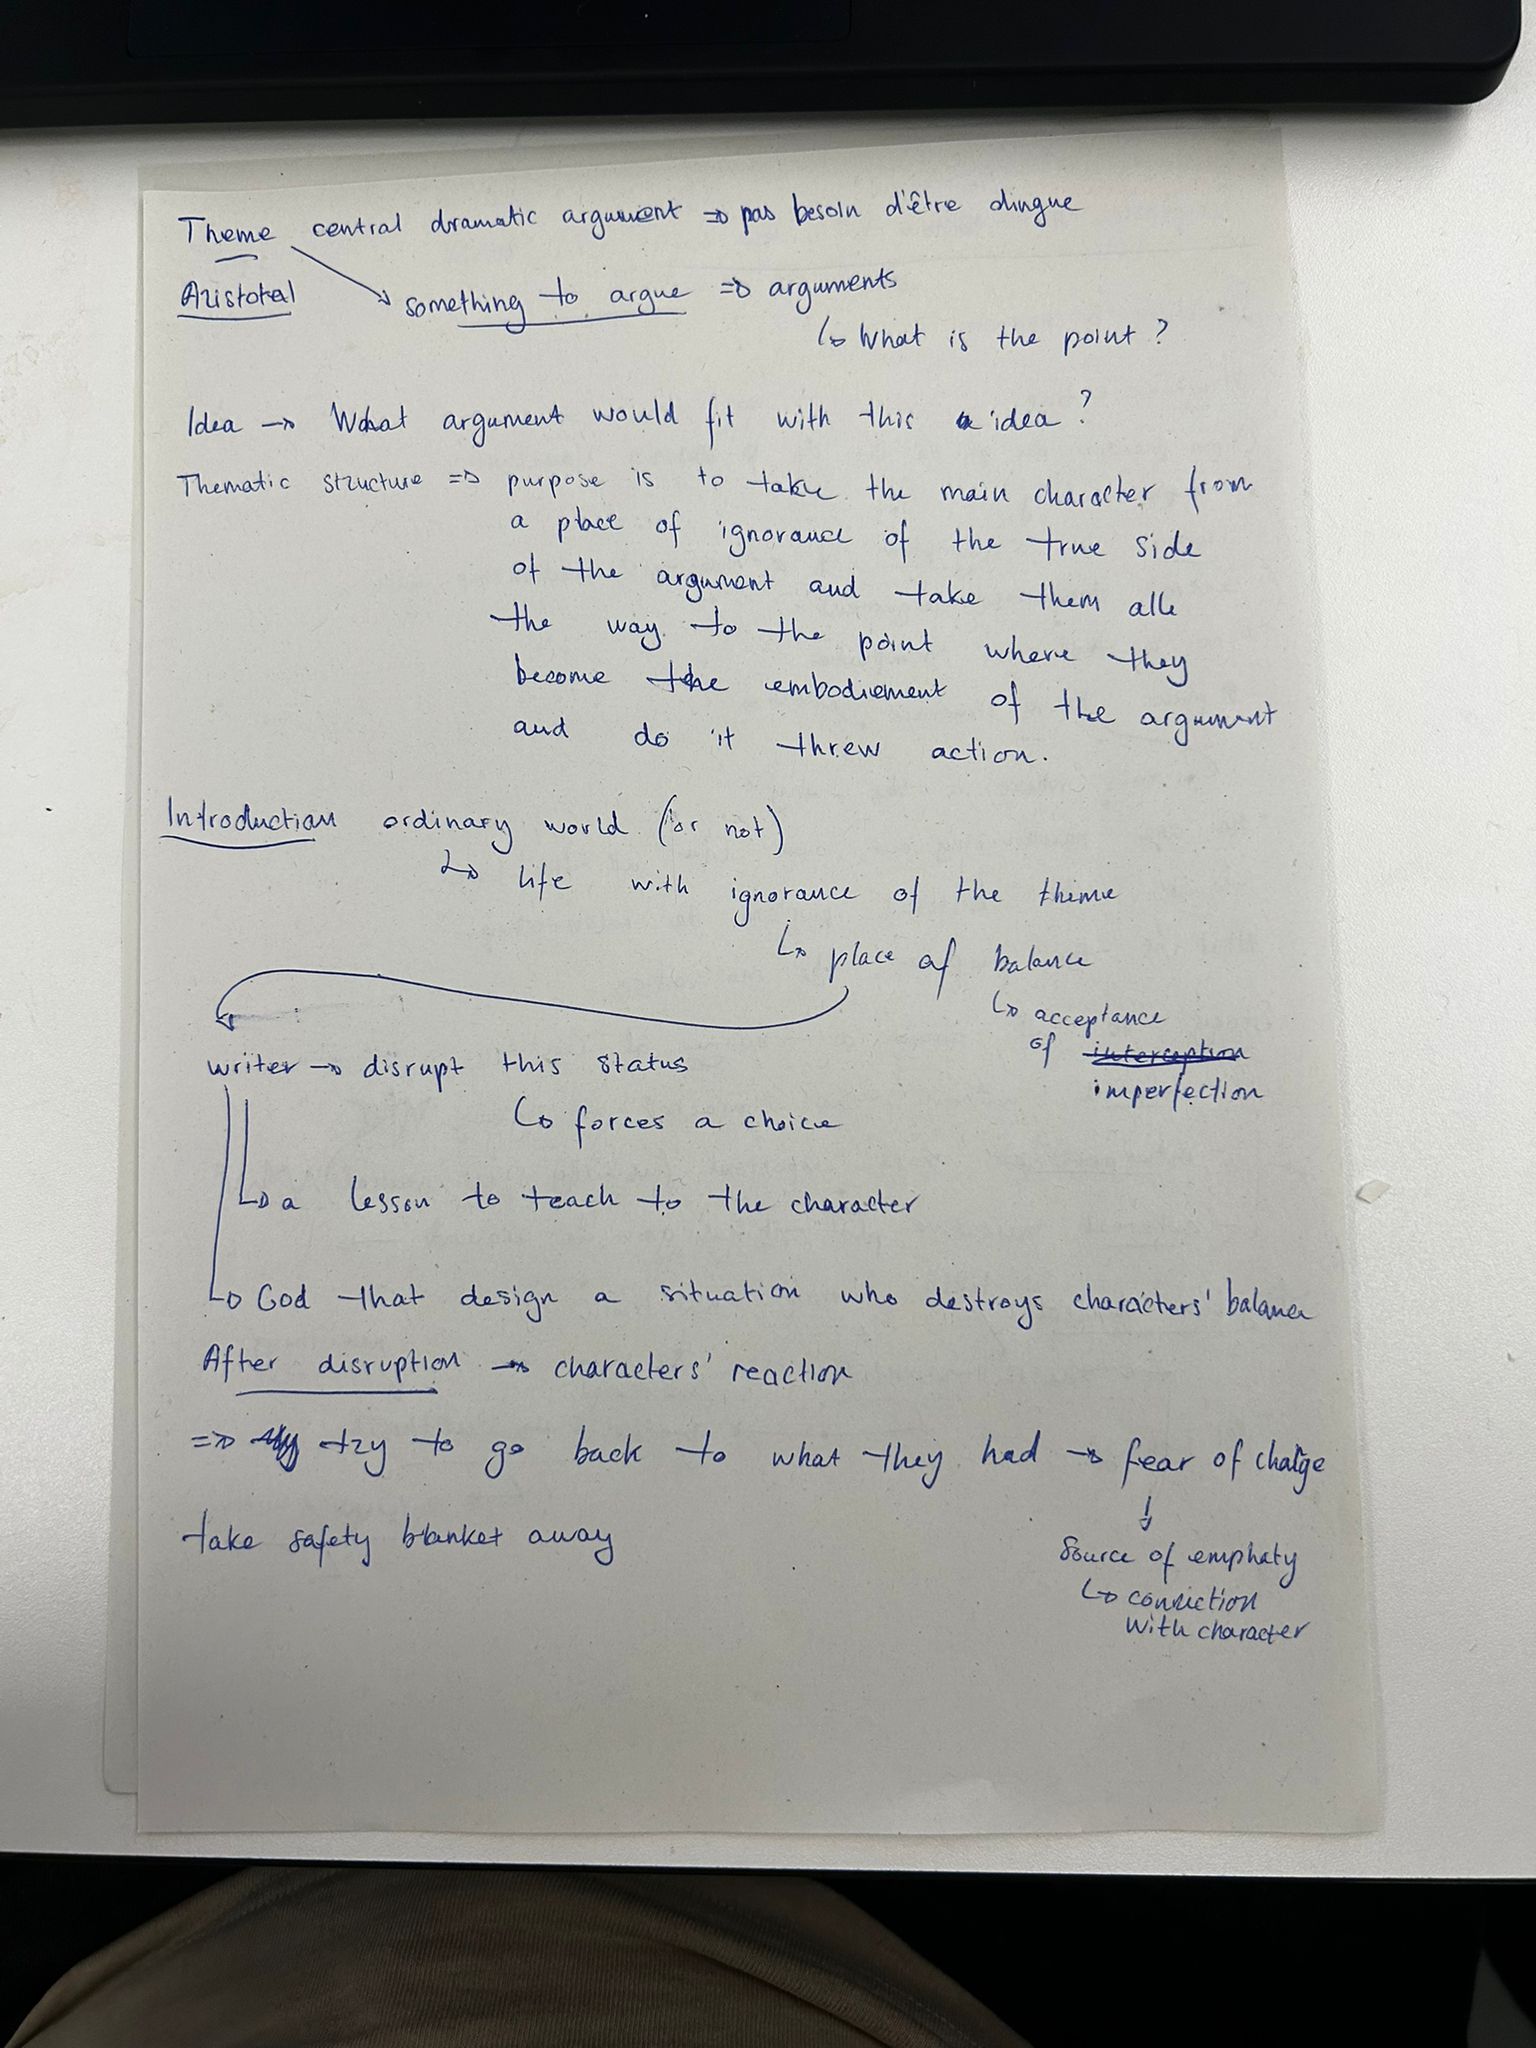 Theme central dramatic argument => pas besoin d'être dingue
Aristotel
something to argue => arguments
↳ What is the point ?
Idea → What argument would fit with this idea ?
Thematic structure => purpose is to take the main character from
a place of ignorance of the true side
of the argument and take them alle
the way to the point where they
become the embodiement of the argument
and do it threw action.
Introduction ordinary world (or not)
↳ life with ignorance of the theme
↳ place of balance
↳ acceptance
of interception
imperfection
writer → disrupt this status
↳ forces a choice
↳ a lesson to teach to the character
↳ God that design a situation who destroys characters' balance
After disruption → characters' reaction
=> try to go back to what they had → fear of change
take safety blanket away
↓
Source of emphaty
↳ connection
with character